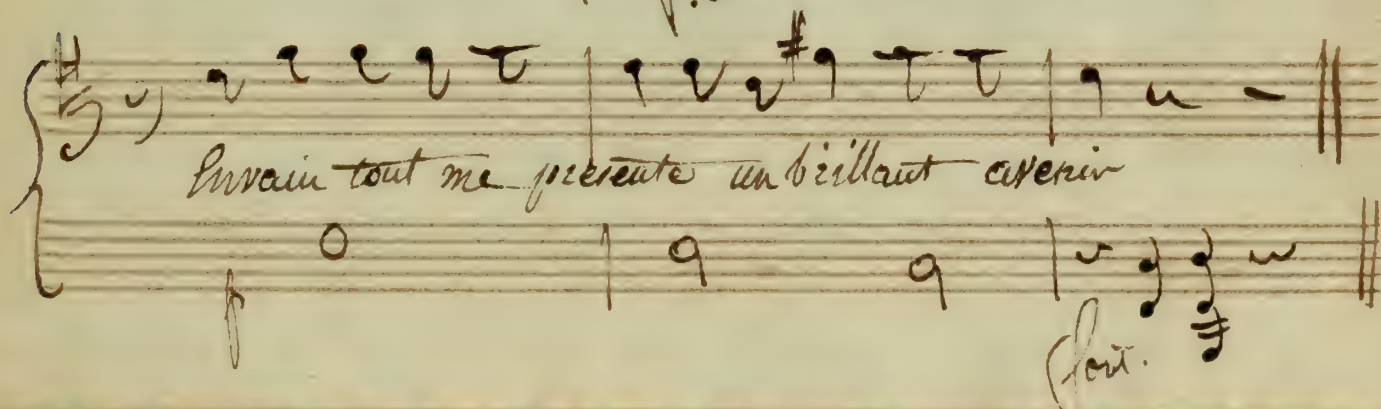 Envain tout me présente un brillant avenir
p
fort.